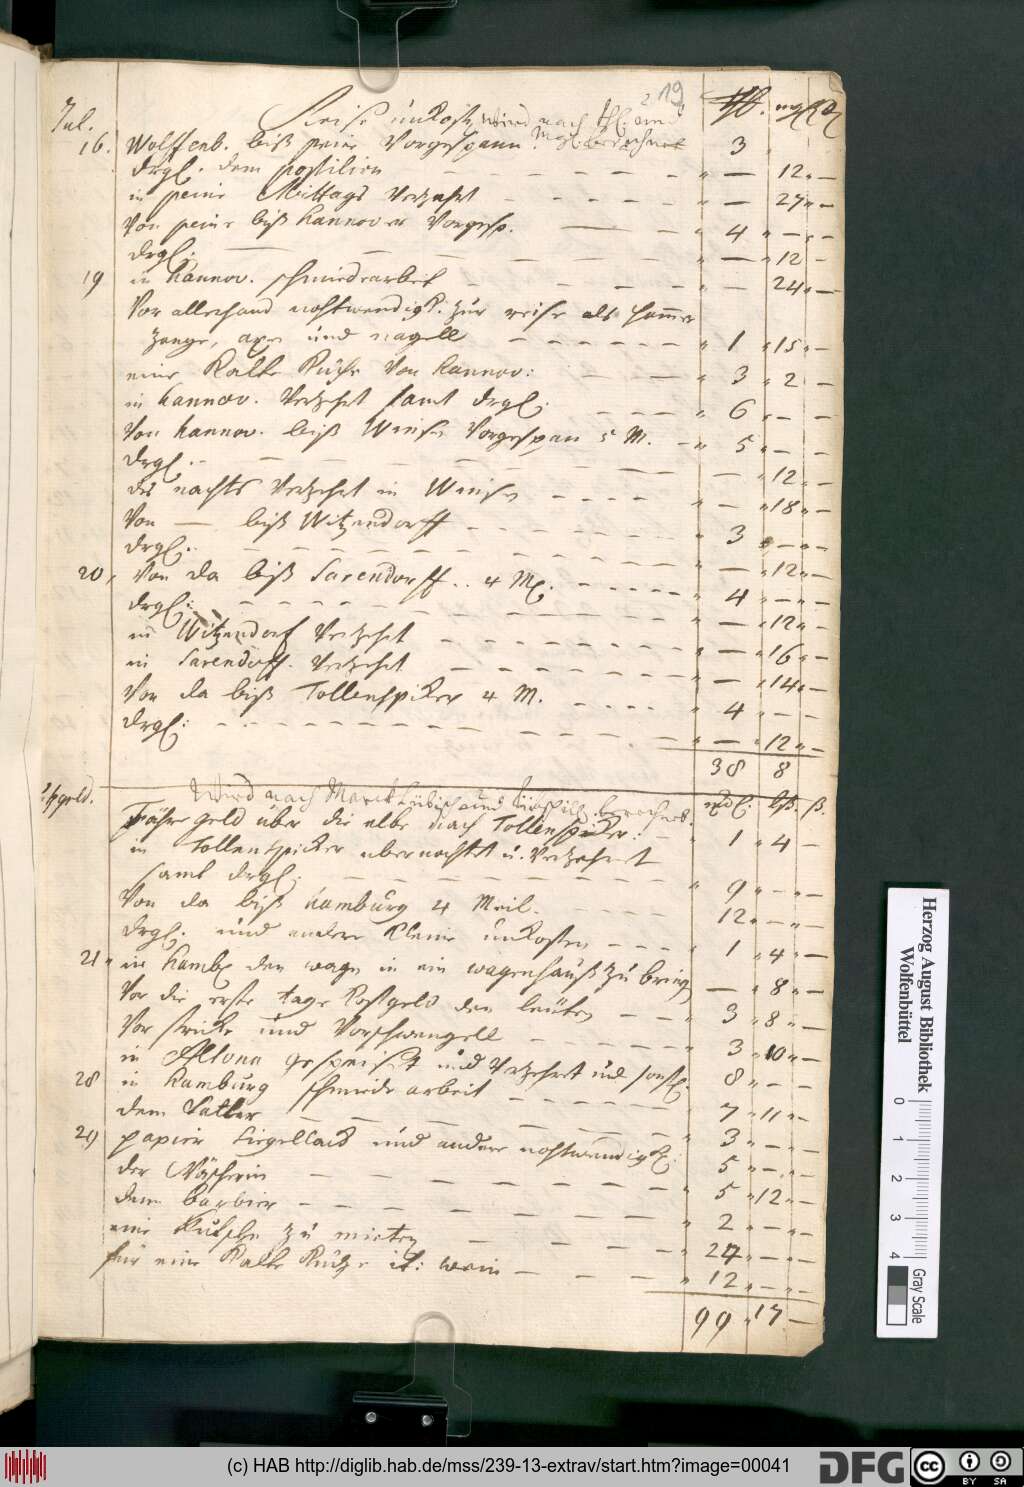 19
Jul. Reise unkost. Wird nach thl. und mgl. berechnet thl. mgl. d
16. Wolffenb. biß peine Vorgespann. 3
drgl. dem postilion — 12 —
in peine Mittags Verzehrt — 27 —
Von peine biß hannover Vorgesp. 4 — —
drgl. — 12 —
19 in hannov. schmiedearbeit — 24 —
Vor allerhand nohtwendigk. zur reise als hammer
zange, axe und nagell 1 15 —
eine Kalte Küche Von hannov: 3 2 —
in hannov. Verzehrt samt drgl. 6 — —
Von hannov. biß Winsen Vorgespan 5 M. 5 — —
drgl. — 12 —
des nachts Verzehrt in Winsen — 18 —
Von — biß Witzendorff 3 — —
drgl. — 12 —
20, Von da biß Sarendorff .. 4 M. 4 — —
drgl: — 12 —
in Witzendorf Verzehrt — 16 —
in Sarendorff. Verzehrt — 14 —
Von da biß Tollenspicker 4 M. 4 — —
drgl: — 12 —
38 8
Wird nach Marck Lübisch und berechnet. ß.
Fähre geld uber die elbe nach Tollenspicker. 1 4 —
in Tollenspicker ubernachtet u. Verzehret
samt drgl. 9 — —
Von da biß hamburg 4 Meil. 12 — —
drgl. und andere Kleine unkosten 1 4 —
21 in hamb. den wagen in ein wagenhauß zu bring — 8 —
Vor die erste tage Kostgeld den leüten 3 8 —
Vor stricke und Vorschwengell 3 10 —
in Altona gespeiset und Verzehret und sonst. 8 — —
28 in hamburg schmiede arbeit 7 11 —
dem Satler 3 — —
29 papier Siegellack und andere nohtwendigk. 5 — —
der Wäscherin 5 12 —
dem barbier 2 — —
eine Kutsche zu mieten 24 — —
für eine Kalte Küche it: wein 12 — —
99 17 —
Herzog August Bibliothek
Wolfenbüttel
0 1 2 3 4
Gray Scale
(c) HAB http://diglib.hab.de/mss/239-13-extrav/start.htm?image=00041
DFG
cc
BY SA